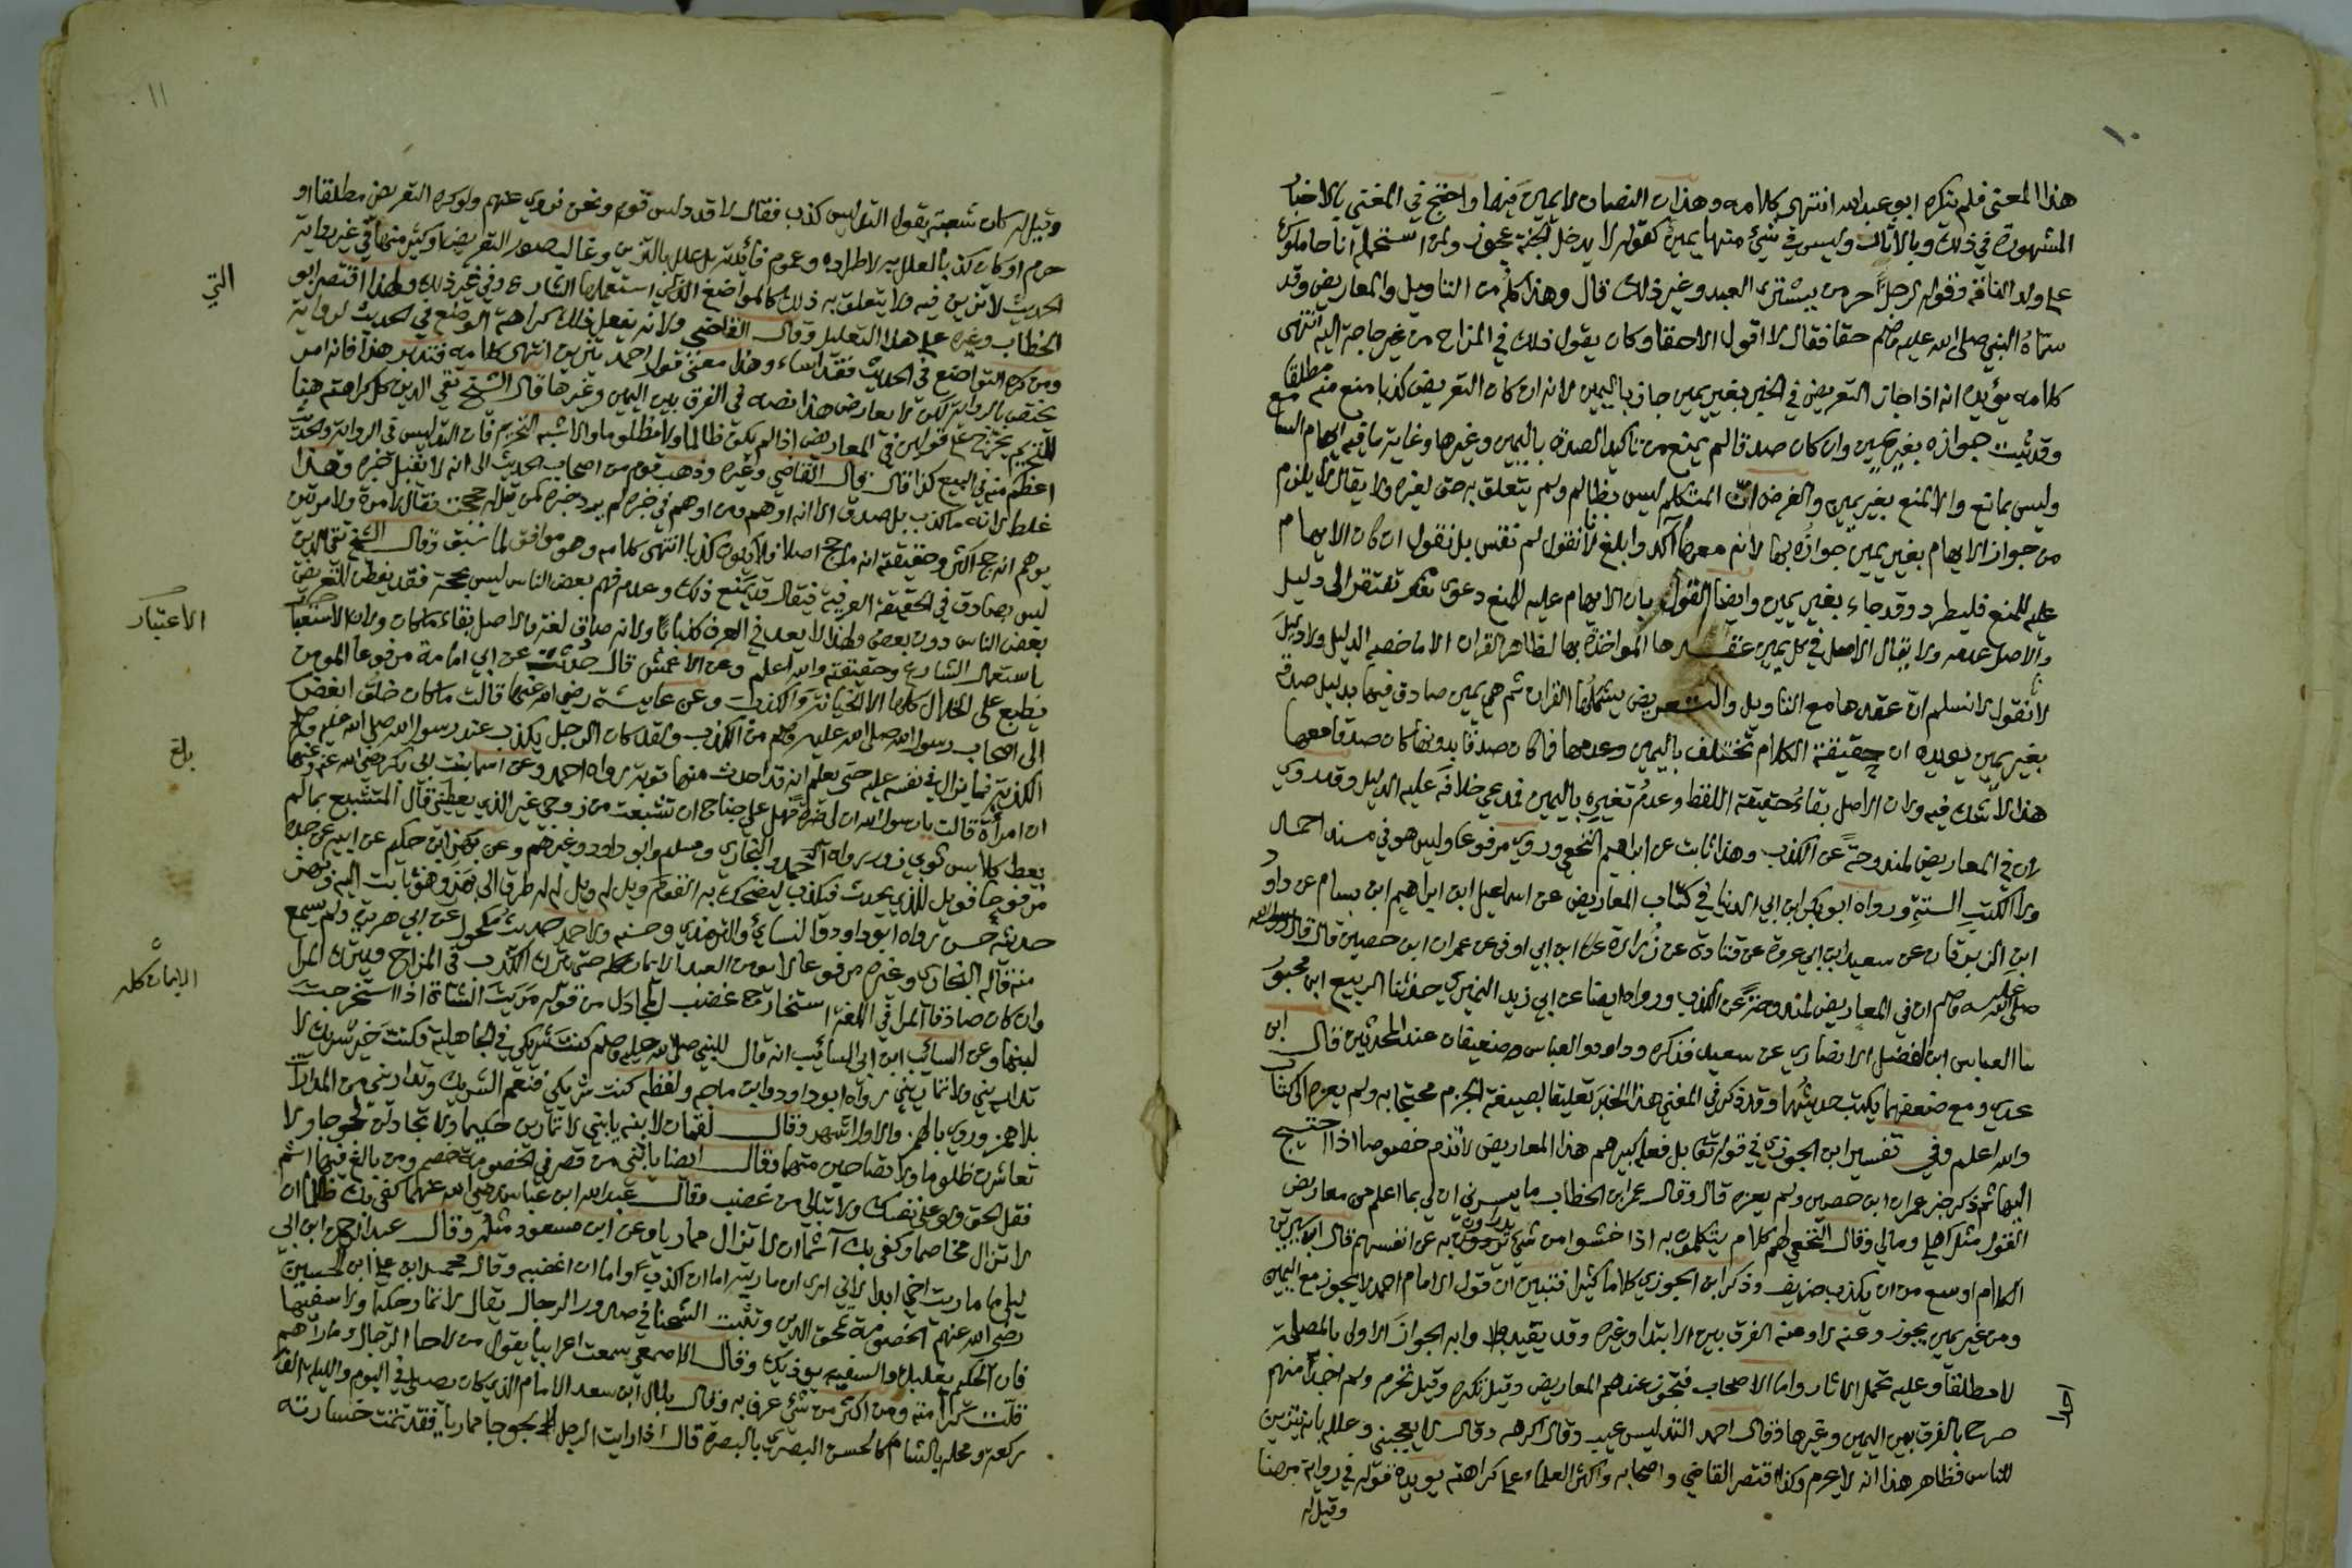 ١٠
هذا المعنى فلم ينكره ابو عبد الله انتهى كلامه وهذان النصان لا يمين فيهما واحتج في المغني بالاخبار
المشهورة في ذلك وبالآثار وليس في شيء منها يمين كقوله لا يدخل الجنة عجوز ولمن استحمله انا حاملوك
على ولد الناقة وقوله لرجل حر من يشتري العبد وغير ذلك قال وهذا كله من التاويل والمعاريض وقد
سماه النبي صلى الله عليه وسلم حقا فقال لا اقول الا حقا وكان يقول ذلك في المزاح من غير حاجة اليه انتهى
كلامه يؤيده انه اذا جاز التعريض في الخبر بغير يمين جاز باليمين لانه ان كان التعريض كذبا منع منه مطلقا
وقد ثبت جوازه بغير يمين وان كان صدقا لم يمنع من تاكيد الصدق باليمين وغيرها وغاية ما فيه ايهام السامع
وليس بمانع والا لمنع بغير يمين والغرض ان المتكلم ليس بظالم ولم يتعلق به حق لغيره ولا يقال لا يلزم
من جواز الايهام بغير يمين جوازه بها لانه معها آكد وابلغ لانا نقول لم نقس بل نقول ان كان الايهام
علة للمنع فليطرد وقد جاء بغير يمين وايضا القول بان الايهام علة المنع دعوى تفتقر الى دليل
والاصل عدمه ولا يقال الاصل في كل يمين عقدها المؤاخذة بها لظاهر القران الا ما خصه الدليل ولا دليل
لانا نقول لا نسلم ان عقدها مع التاويل والتعريض يشملها القران ثم هي يمين صادق فيها بدليل صدقه
بغير يمين يؤيده ان حقيقة الكلام لا تختلف باليمين وعدمها فما كان صدقا بدونها كان صدقا معها
هذا لا شك فيه ولان الاصل بقاء حقيقة اللفظ وعدم تغيره باليمين فمدعي خلافه عليه الدليل وقد روي
ان في المعاريض لمندوحة عن الكذب وهذا ثابت عن ابراهيم النخعي وروي مرفوعا وليس هو في مسند احمد
ولا الكتب الستة ورواه ابو بكر ابن ابي الدنيا في كتاب المعاريض عن اسماعيل ابن ابراهيم ابن بسام عن داود
ابن الزبرقان عن سعيد ابن ابي عروبة عن قتادة عن زرارة ابن ابي اوفى عن عمران ابن حصين قال قال رسول الله
صلى الله عليه وسلم ان في المعاريض لمندوحة عن الكذب ورواه ايضا عن ابي زيد النميري حدثنا الربيع ابن محبور
نا العباس ابن الفضل الانصاري عن سعيد فذكره وداود والعباس ضعيفان عند المحدثين قال ابن
عدي ومع ضعفهما يكتب حديثهما وقد ذكر في المغني هذا الخبر تعليقا بصيغة الجزم محتجا به ولم يعزه الى كتاب
والله اعلم وفي تفسير ابن الجوزي في قوله تعالى بل فعله كبيرهم هذا المعاريض لا تذم خصوصا اذا احتيج
اليها ثم ذكر خبر عمران ابن حصين ولم يعزه قال وقال عمر ابن الخطاب ما يسرني ان لي بما اعلم من معاريض
القول مثل اهلي ومالي وقال النخعي لهم كلام يتكلمون به اذا خشوا من شيء يدرؤن به عن انفسهم قال ابن سيرين
الكلام اوسع من ان يكذب ظريف وذكر ابن الجوزي كلاما كثيرا فتبين ان قول الامام احمد لا يجوز مع اليمين
ومن غير يمين يجوز وعنه لا وعنه الفرق بين الابتدا وغيره وقد يقيد جواز الاولى بالمصلحة
لا مطلقا وعليه تحمل الآثار واما الاصحاب فتجوز عندهم المعاريض وقيل تكره وقيل تحرم ولم اجد احدا منهم
صرح بالفرق بين اليمين وغيرها وقال احمد التدليس عيب وقال اكرهه وقال لا يعجبني وعلل بانه يتزين
للناس فظاهر هذا انه لا يحرم وكذا اقتصر القاضي واصحابه واكثر العلماء على كراهته يؤيده قوله في رواية مهنا
وقيل له
١١
وقيل له كان شعبة يقول التدليس كذب فقال لا قد دلس قوم ونحن نروي عنهم ولو كره التعريض مطلقا او
حرم او كان كذبا لعلل به لاطراده وعموم فائدته بل علل بالتزين وغالب صور التعريض او كثير منها في غير رواية
الحديث لا تزين فيه ولا يتعلق به ذلك كالمواضع التي استعملها الشارع وفي غير ذلك ولهذا اقتصر ابو
الخطاب وغيره على هذا التعليل وقال القاضي ولانه يفعل ذلك كراهة الوضع في الحديث لروايته
ومن كره التواضع في الحديث فقد اساء وهذا معنى قول احمد يتزين انتهى كلامه فتدبر هذا فانه امر
يختص بالرواية لكن لا يعارض هذا نصه في الفرق بين اليمين وغيرها قال الشيخ تقي الدين كل كراهته هنا
للتحريم يخرج على قولين في المعاريض اذا لم يكن ظالما ولا مظلوما والاشبه التحريم فان التدليس في الرواية والحديث
اعظم منه في البيع كذا قال قال القاضي وغيره وذهب قوم من اصحاب الحديث الى انه لا يقبل خبره وهذا
غلط لانه ما كذب بل صدق الا انه اوهم ومن اوهم في خبره لم يرد خبره كمن قيل له حججت فقال لا مرة ولا مرتين
يوهم انه حج اكثر وحقيقته انه ما حج اصلا فلا يكون كذبا انتهى كلامه وهو موافق لما سبق وقال الشيخ تقي الدين
ليس بصادق في الحقيقة العرفية فيقال قد يمنع ذلك وعدم فهم بعض الناس ليس بحجة فقد يفطن للتعريض
بعض الناس دون بعض ولهذا لا يعد في العرف كذابا ولانه صادق لغة والاصل بقاء ما كان ولان الاعتبار
باستعمال الشارع وحقيقته والله اعلم وعن الاعمش قال حدثت عن ابي امامة مرفوعا المومن
يطبع على الخلال كلها الا الخيانة والكذب وعن عايشة رضي الله عنها قالت ما كان خلق ابغض
الى اصحاب رسول الله صلى الله عليه وسلم من الكذب ولقد كان الرجل يكذب عند رسول الله صلى الله عليه وسلم
الكذبة فما يزال في نفسه عليه حتى يعلم انه قد احدث منها توبة رواه احمد وعن اسما بنت ابي بكر رضي الله عنهما
ان امرأة قالت يا رسول الله ان لي ضرة فهل علي جناح ان تشبعت من زوجي غير الذي يعطيني قال المتشبع بما لم
يعط كلابس ثوبي زور رواه احمد والبخاري ومسلم وابو داود وغيرهم وعن بهز ابن حكيم عن ابيه عن جده
مرفوعا ويل للذي يحدث فيكذب ليضحك به القوم ويل له ويل له له طرق الى بهز وهو ثابت اليه وبهز
حديثه حسن رواه ابو داود والنسائي والترمذي وحسنه ولاحمد حديث مكحول عن ابي هريرة ولم يسمع
منه قاله البخاري وغيره مرفوعا لا يومن العبد الايمان كله حتى يترك الكذب في المزاح ويترك المراء
وان كان صادقا المراء في اللغة استخراج غضب المجادل من قوله مريت الشاة اذا استخرجت
لبنها وعن السائب ابن ابي السائب انه قال للنبي صلى الله عليه وسلم كنت شريكي في الجاهلية فكنت خير شريك لا
تداريني ولا تماريني رواه ابو داود وابن ماجه ولفظه كنت شريكي فنعم الشريك وتداريني من المداراة
بلا همز وروي بالهمز والاول اشهر وقال لقمان لابنه يا بني لا تمارين حكيما ولا تجادلن لجوجا ولا
تعاشرن ظلوما ولا تصاحبن متهما وقال ايضا يا بني من قصر في الخصومة خصم ومن بالغ فيها اثم
فقل الحق ولو على نفسك ولا تبالي من غضب وقال عبد الله ابن عباس رضي الله عنهما كفى بك ظلما ان
لا تزال مخاصما وكفى بك آثما ان لا تزال مماريا وعن ابن مسعود مثله وقال عبد الرحمن ابن ابي
ليلى ما ماريت اخي ابدا لاني ارى ان ماريته اما ان اكذبه واما ان اغضبه وقال محمد ابن علي ابن الحسين
رضي الله عنهم الخصومة تمحق الدين وتنبت الشحناء في صدور الرجال يقال لا تمار حكيما ولا سفيها
فان الحكيم يغلبك والسفيه يوذيك وقال الاصمعي سمعت اعرابيا يقول من لاحا الرجال وماراهم
قلت كرامته ومن اكثر من شيء عرف به وقال بلال ابن سعد الامام الذي كان يصلي في اليوم والليلة الف
ركعة ومحله بالشام كالحسن البصري بالبصرة قال اذا رايت الرجل لجوجا مماريا فقد تمت خسارته
التي
الاعتبار
بلغ
الايمان كله